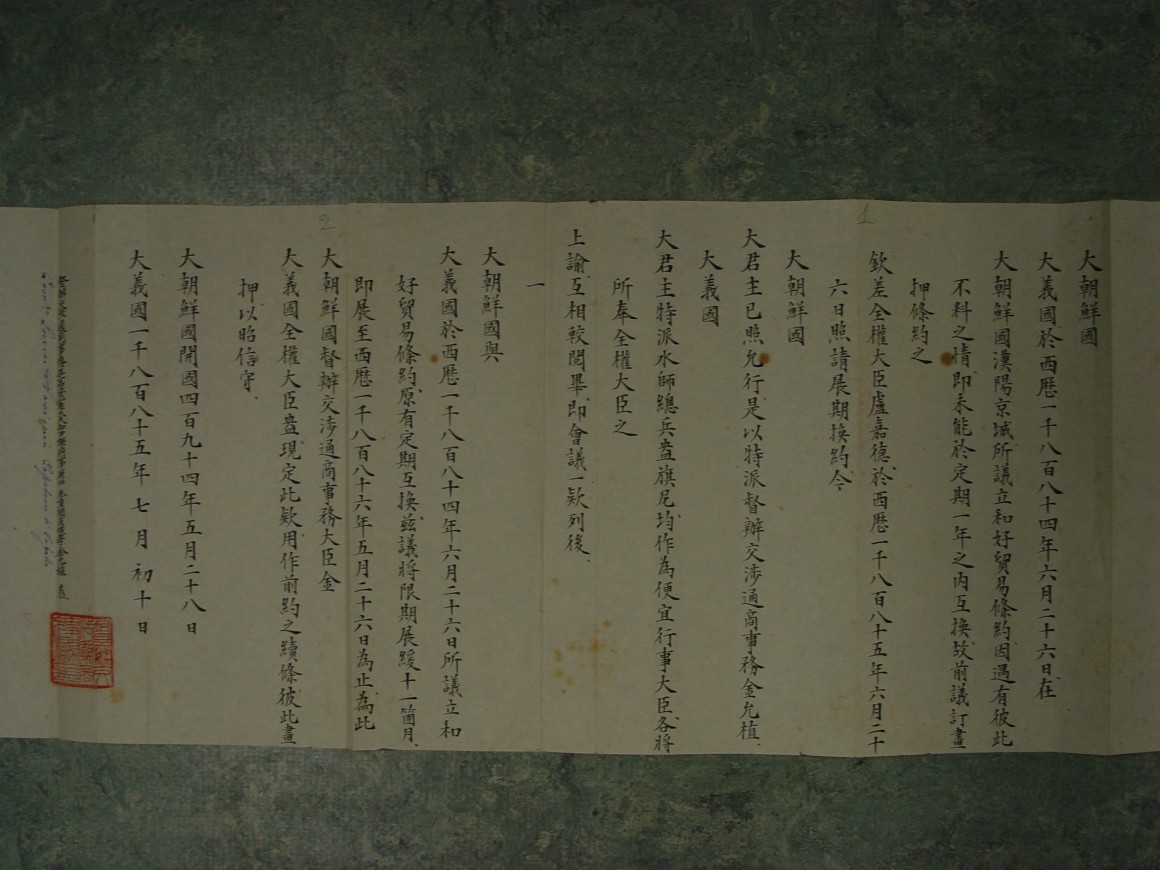 大朝鮮國
大義國於西歷一千八百八十四年六月二十六日在
大朝鮮國漢陽京城所議立和好貿易條約因遇有彼此
不料之情即未能於定期一年之內互換故前議訂畫
押條約之
欽差全權大臣盧嘉德於西歷一千八百八十五年六月二十
六日照請展期換約今
大朝鮮國
大君主已照允行是以特派督辦交涉通商事務金允植
大義國
大君主特派水師總兵蠱旗尼均作為便宜行事大臣各將
所奉全權大臣之
上諭互相較閱畢即會議一欵列後
一
大朝鮮國與
大義國於西歷一千八百八十四年六月二十六日所議立和
好貿易條約原有定期互換茲議將限期展緩十一箇月
即展至西歷一千八百八十六年五月二十六日為止為此
大朝鮮國督辦交涉通商事務大臣金
大義國全權大臣蠱現定此欵用作前約之續條彼此畫
押以昭信守
大朝鮮國開國四百九十四年五月二十八日
大義國一千八百八十五年七月初十日
1
2